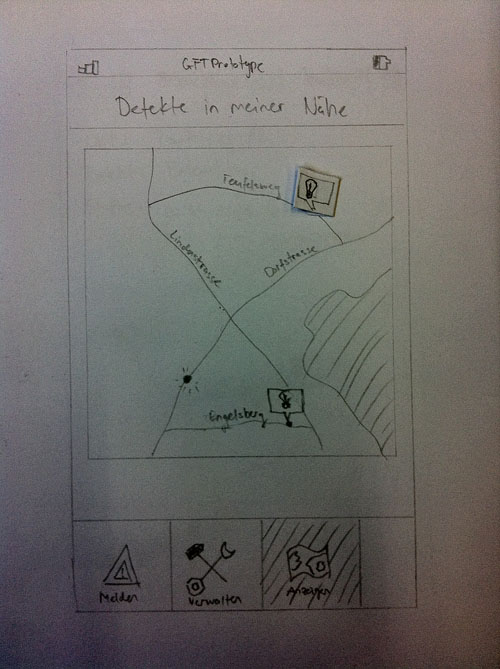 GFTPrototype
Defekte in meiner Nähe
Teufelsweg
Lindenstrasse
Dorfstrasse
Engelsberg
Melden
Verwalten
Anzeigen